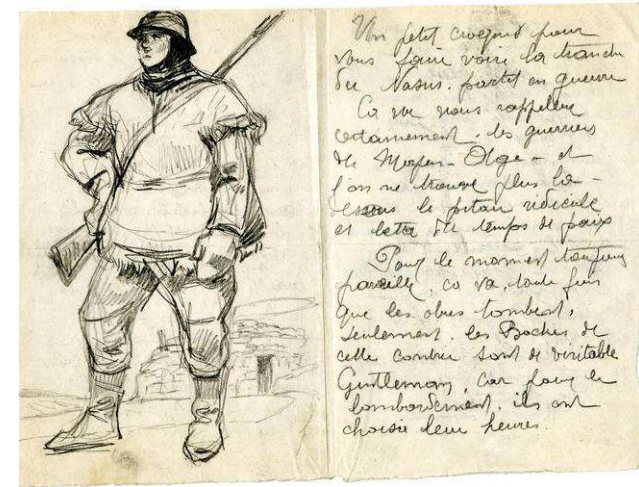 Un petit croquis pour
vous faire voire la tranche
du Nasus. partit en guerre
Ca va vous rappeler
certainement. les guerriers
du Moyen-Age - et
l'on ne trouve plus la-
dessous le pitau ridicule
et bete du temps de paix
Pour le moment toujours
pareille, ca va, toute fois
que les obus tombent,
seulement. les Boches de
cette contree sont de veritable
Gentleman, car pour le
bombardement. ils ont
choisie leur heures.